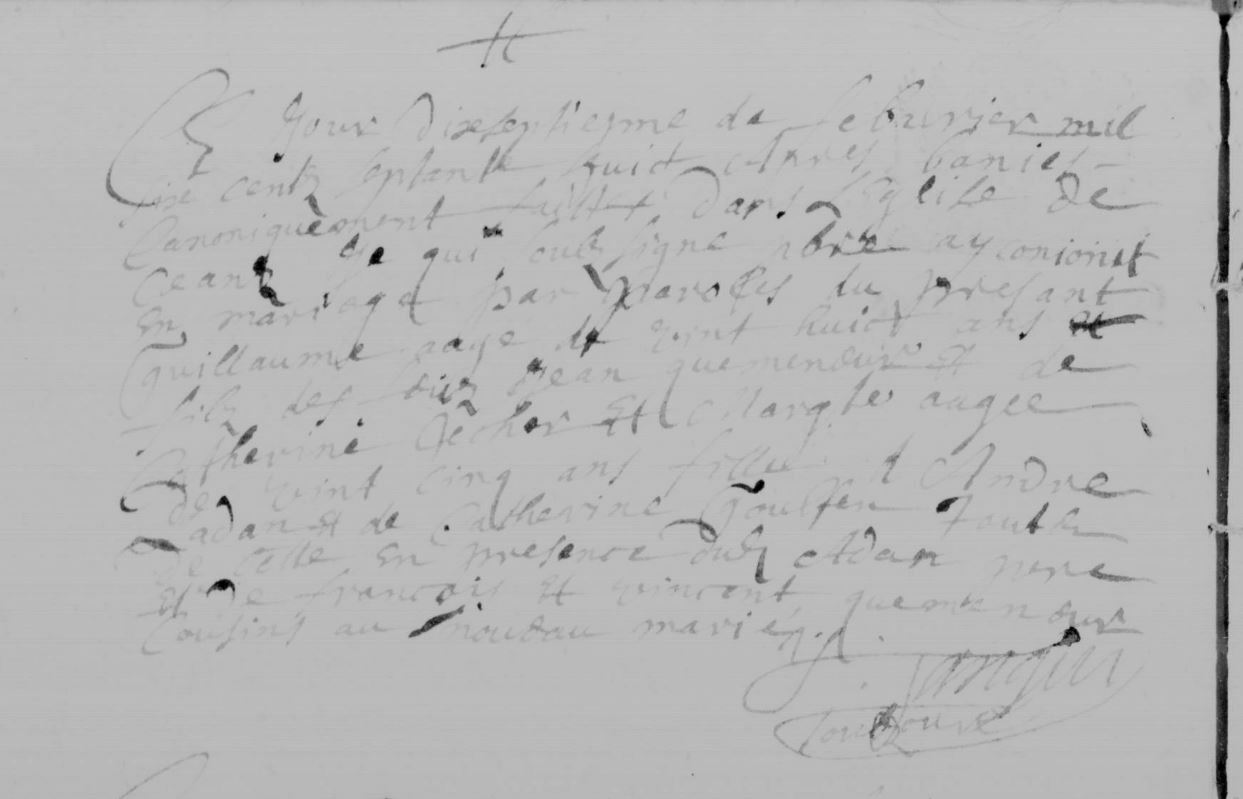 Ce Jour dixseptiesme de febvrier mil
six centz septante huict Apres banies
Canoniquement faittes dans L'Eglise de
ceans Je qui soubsigne pbre ay conioinct
En mariage par parolles du presant
Guillaume aage de vint huict ans
filz des feuz Jean quemeneur Et de
Catherine Et Margte aagee
de vint cinq ans fille d' Andre
adan Et de Catherine Goulfen touts
de celle En presence dud Adan pere
Et de francois Et vincent quemeneur
Cousins au nouveau mariez.